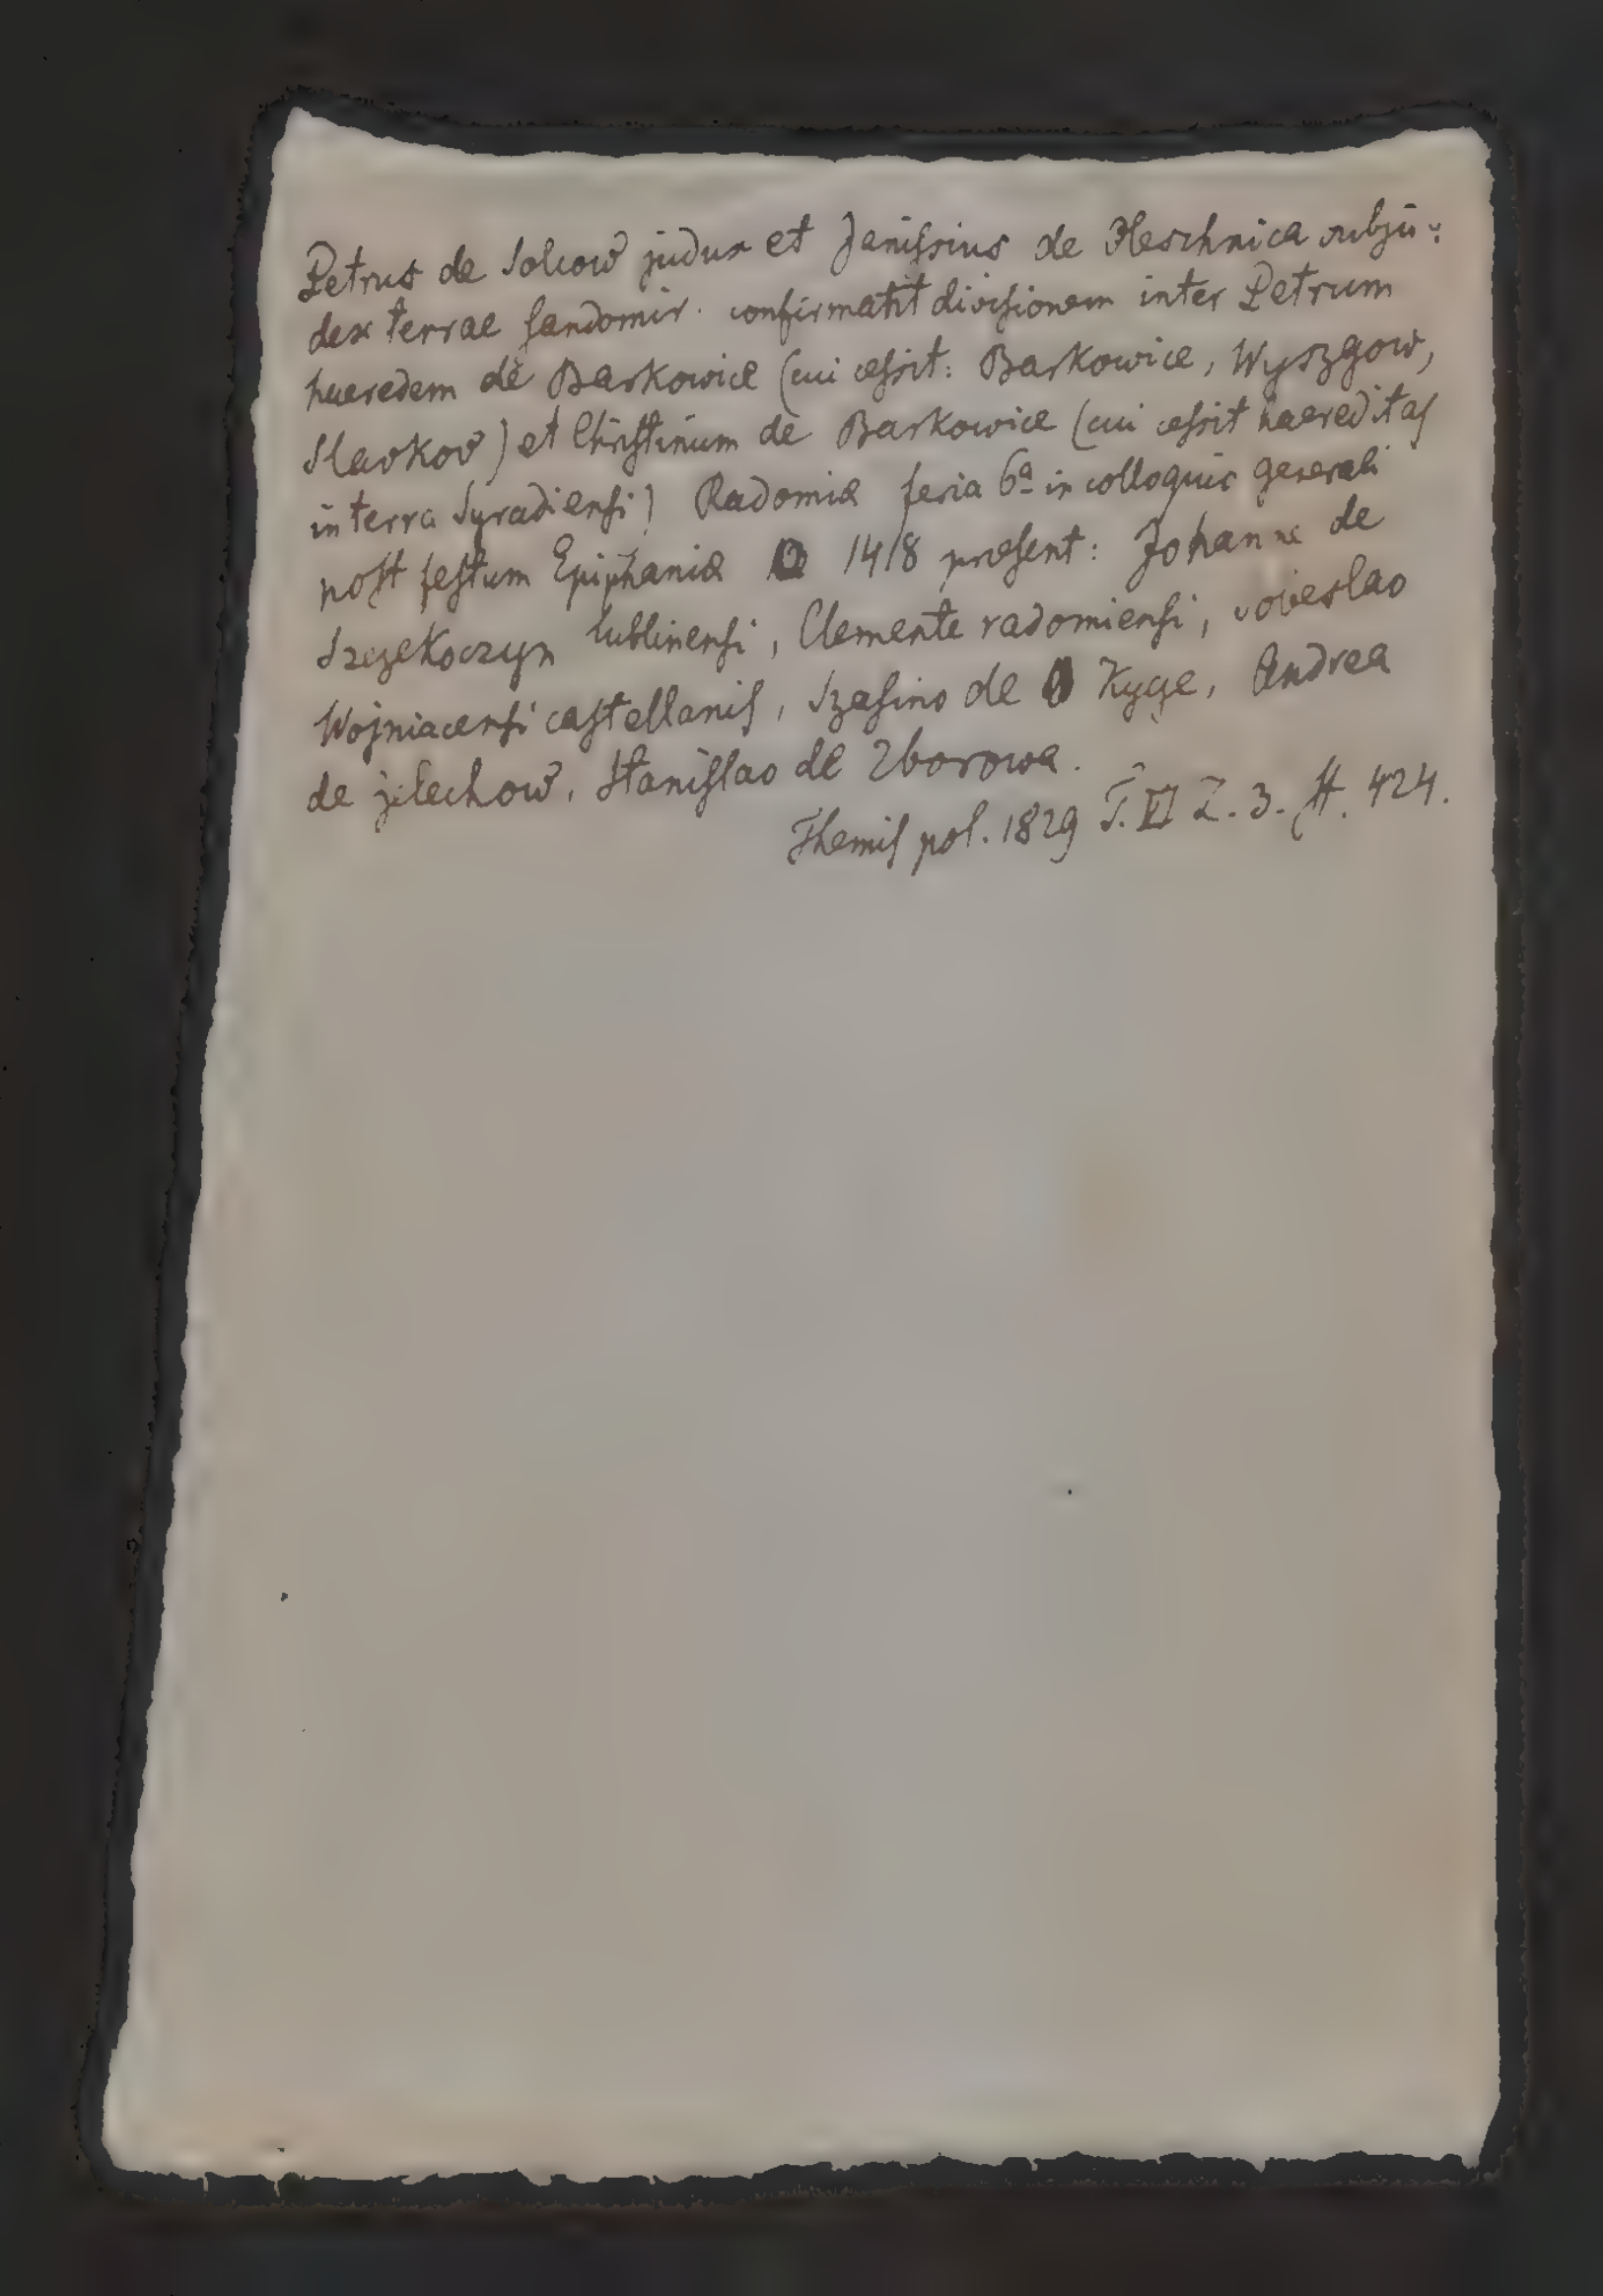 Petrus de Solcow judex et Janissius de Oleschnica subju:
dex terrae Sandomir. confirmatit divisionem inter Petrum
haeredem de Barkowice (cui cessit: Barkowice, Wyszgow,
Slavkov) et Christinum de Barkowice (cui cessit haereditas
in terra Syradiensi) Radomiæ feria 6ª in colloquio generali
post festum Epiphaniæ 1418 præsent: Johanne de
Szczekoczyn lublinensi, Clemente radomiensi,
Wojniacensi castellanis, de Kyge, Andrea
de jelechow, Stanislao de Zborowa.
Themis pol. 1829 T. VI Z. 3. St. 424.